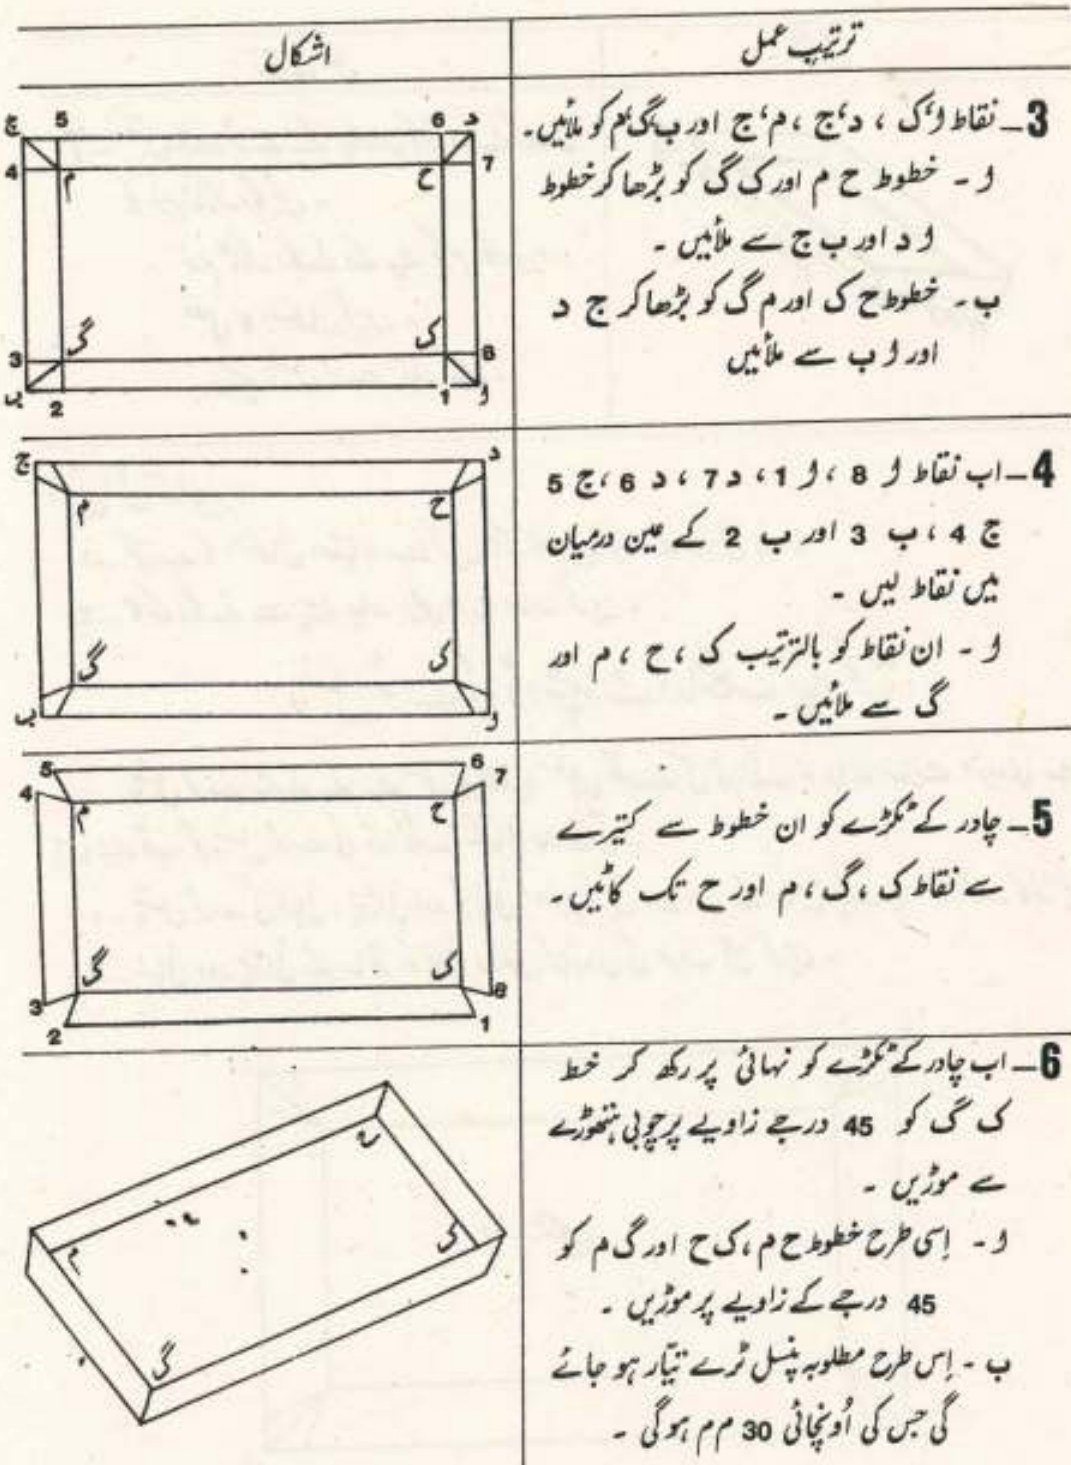 ترتیب عمل
اشکال
3_ نقاط ا،ک ، د،ح ، م،ج اور ب،گ کو ملائیں۔
ا ۔ خطوط ح م اور ک گ کو بڑھا کر خطوط
ا د اور ب ج سے ملائیں ۔
ب ۔ خطوط ح ک اور م گ کو بڑھا کر ج د
اور ا ب سے ملائیں
ج 5 6 د
4 م ح 7
3 گ ک 8
ب 2 1 ا
4_ اب نقاط ا 8 ، ا 1 ، د 7 ، د 6 ، ج 5
ج 4 ، ب 3 اور ب 2 کے عین درمیان
میں نقاط لیں ۔
ا ۔ ان نقاط کو بالترتیب ک ، ح ، م اور
گ سے ملائیں ۔
ج د
م ح
گ ک
ب ا
5_ چادر کے ٹکڑے کو ان خطوط سے کتیرے
سے نقاط ک ، گ ، م اور ح تک کاٹیں۔
5 6
4 م ح 7
3 گ ک 8
2 1
6_ اب چادر کے ٹکڑے کو نہائی پر رکھ کر خط
ک گ کو 45 درجے زاویے پر چوبی ہتھوڑے
سے موڑیں ۔
ا ۔ اِسی طرح خطوط ح م ، ک ح اور گ م کو
45 درجے کے زاویے پر موڑیں ۔
ب ۔ اِس طرح مطلوبہ پنسل ٹرے تیّار ہو جائے
گی جس کی اُونچائی 30 م م ہوگی ۔
ح
م ک
گ